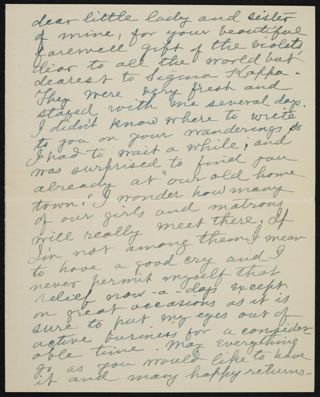 dear little lady and sister
of mine, for your beautiful
farewell gift of the violets
dear to all the world but
dearest to Sigma Kappa.
They were very fresh and
stayed with me several days.
I didn't know where to write
to you on your wanderings so
I had to wait a while, and
was surprised to find you
already at "our old home
town." I wonder how many
of our girls and matrons
will really meet there. If
I'm not among them I mean
to have a good cry and I
never permit myself that
relief now-a-days except
on great occasions as it is
sure to put my eyes out of
active business for a consider-
able time. May everything
go as you would like to have
it and many happy returns-